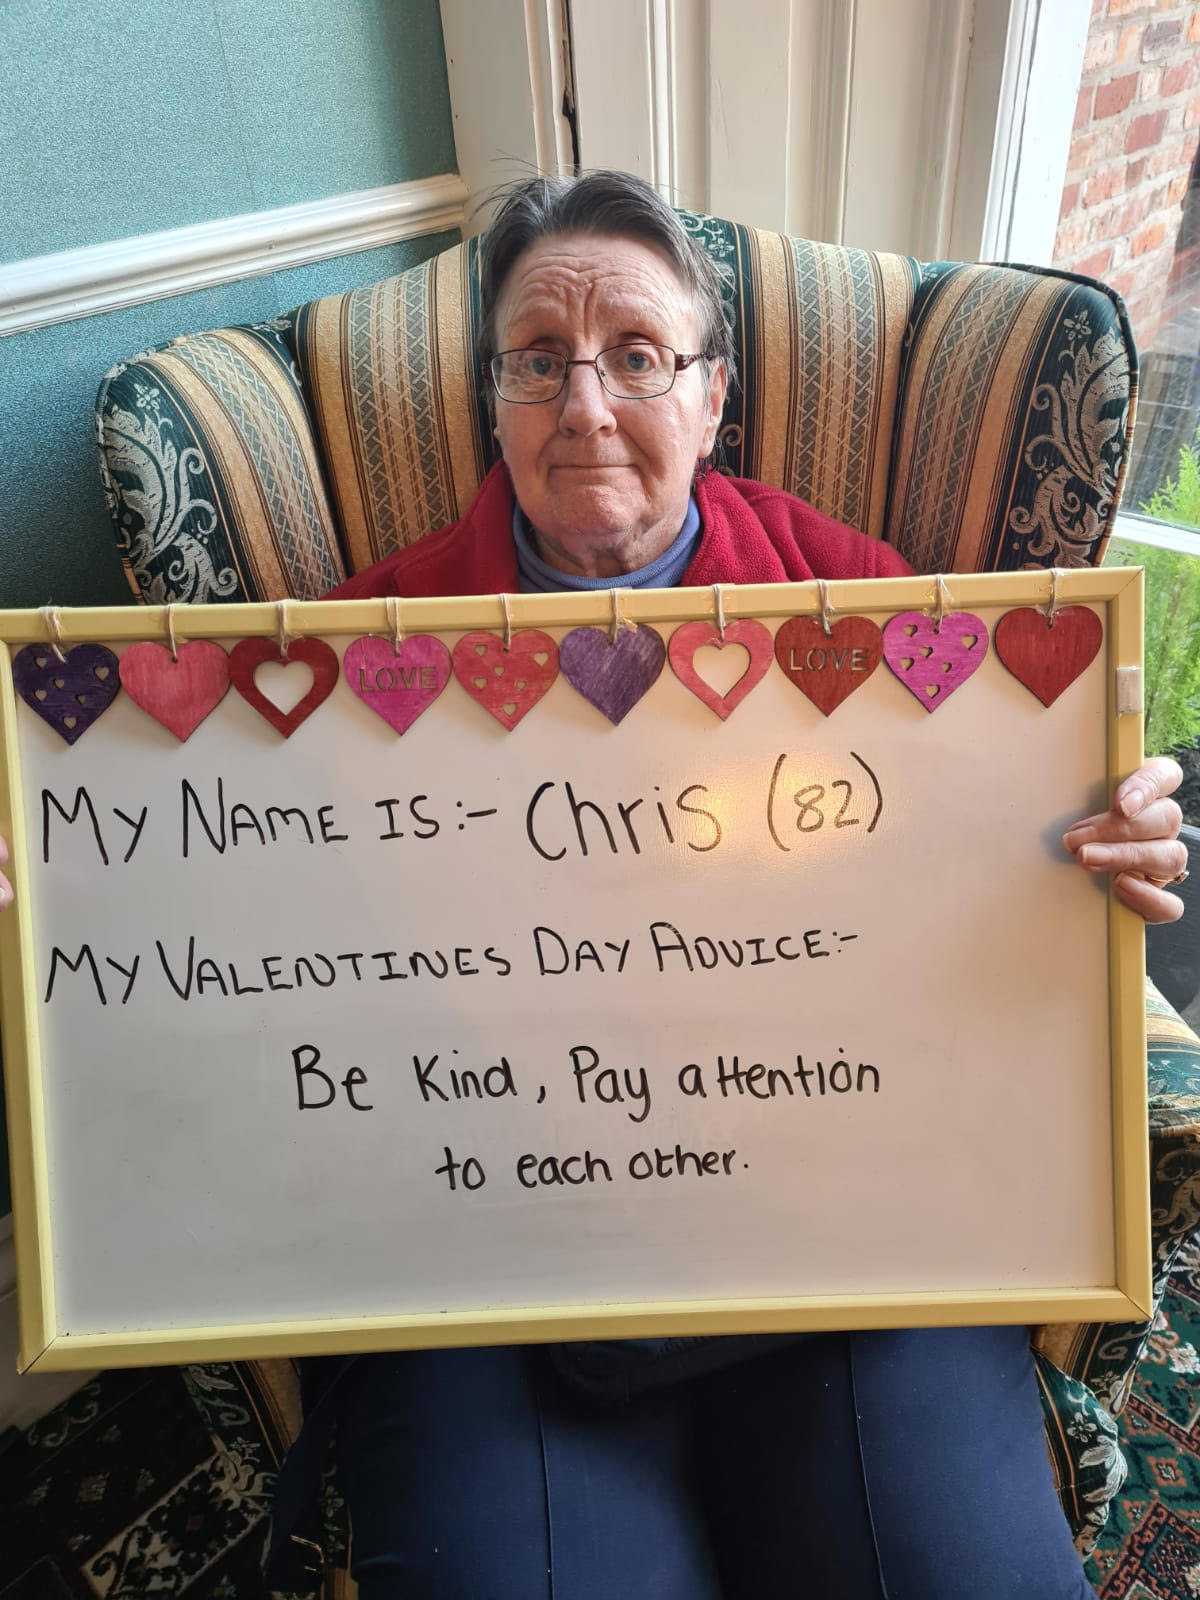 LOVE LOVE
My NAME IS:- Chris (82)
My VALENTINES DAY ADVICE:-
Be Kind, Pay attention
to each other.